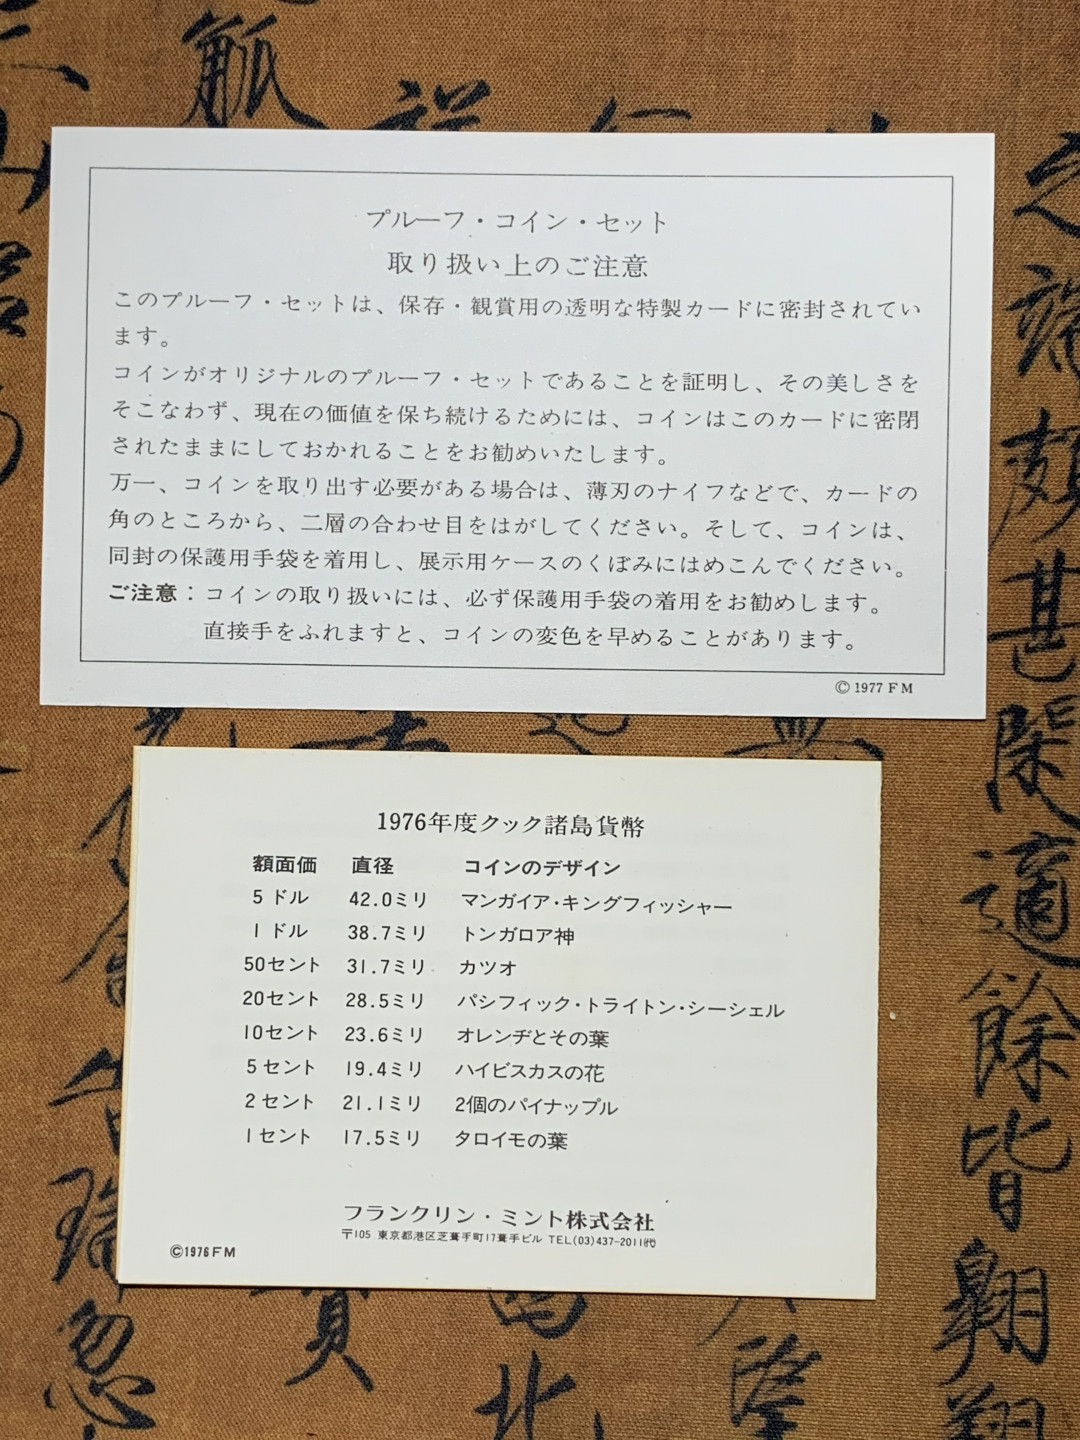 プルーフ・コイン・セット
取り扱い上のご注意
このプルーフ・セットは、保存・観賞用の透明な特製カードに密封されてい
ます。
コインがオリジナルのプルーフ・セットであることを証明し、その美しさを
そこなわず、現在の価値を保ち続けるためには、コインはこのカードに密閉
されたままにしておかれることをお勧めいたします。
万一、コインを取り出す必要がある場合は、薄刃のナイフなどで、カードの
角のところから、二層の合わせ目をはがしてください。そして、コインは、
同封の保護用手袋を着用し、展示用ケースのくぼみにはめこんでください。
ご注意：コインの取り扱いには、必ず保護用手袋の着用をお勧めします。
直接手をふれますと、コインの変色を早めることがあります。
© 1977 F M
1976年度クック諸島貨幣
額面価 直径 コインのデザイン
5ドル 42.0ミリ マンガイア・キングフィッシャー
1ドル 38.7ミリ トンガロア神
50セント 31.7ミリ カツオ
20セント 28.5ミリ パシフィック・トライトン・シーシェル
10セント 23.6ミリ オレンヂとその葉
5セント 19.4ミリ ハイビスカスの花
2セント 21.1ミリ 2個のパイナップル
1セント 17.5ミリ タロイモの葉
フランクリン・ミント株式会社
〒105 東京都港区芝葺手町17葺手ビル TEL(03)437-2011㈹
©1976 F M
觚
之
端
頗
甚
適
餘
皆
翔
忽
北